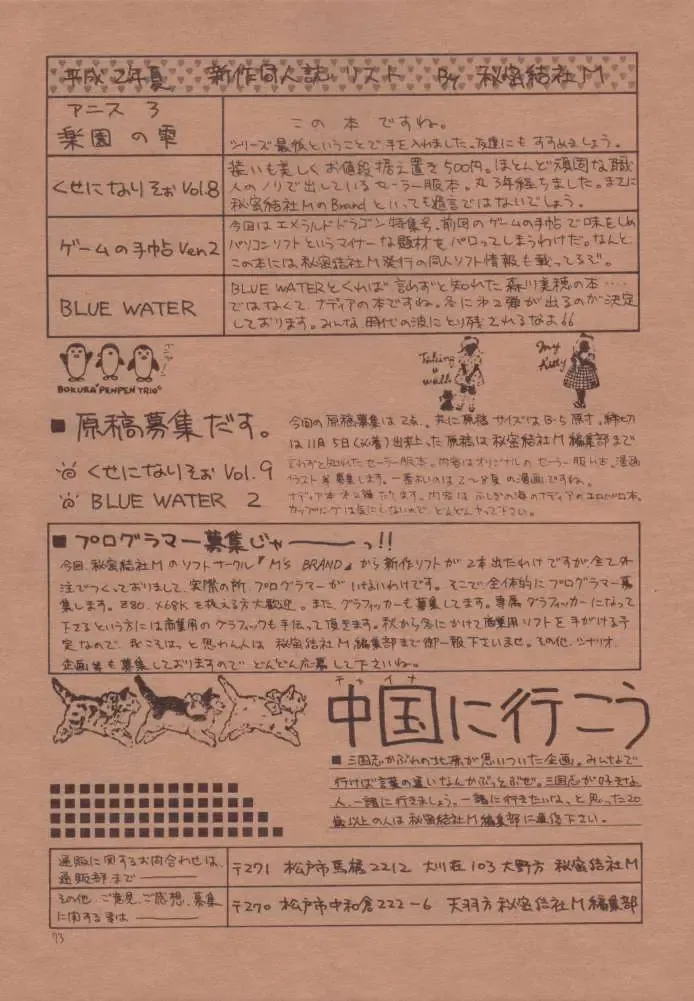 平成2年夏 新作同人誌リスト By 秘密結社M
アニス 3
楽園の雫
この本ですね。
シリーズ最後ということで手を入れました。友達にもすすめましょう。
くせになりそぉ Vol.8
装いも美しくお値段据え置き500円。ほとんど頑固な職
人のノリで出しているセーラー服本。丸3年経ちました。まさに
秘密結社MのBrandといっても過言ではないでしょう。
ゲームの手帖 Ven2
今回はエメラルドドラゴン特集号。前回のゲームの手帖で味をしめ
パソコンソフトというマイナーな題材をパロってしまうわけだ。なんと
この本には秘密結社M発行の同人ソフト情報も載ってるぞ。
BLUE WATER
BLUE WATERとくれば言わずと知れた森川美穂の本‥‥
ではなくて、ナディアの本ですね。冬に第2弾が出るのが決定
しております。みんな時代の波にとり残されるなよ
BOKURA PENPEN TRIO
Taking a walk
My Kitty
■原稿募集だす。
くせになりそぉ Vol.9
BLUE WATER 2
今回の原稿募集は2点。共に原稿サイズはB-5原寸。締切
は11月5日(必着)出来上った原稿は秘密結社M編集部まで
言わずと知れたセーラー服本。内容はオリジナルのセーラー服H本。漫画
イラスト等募集します。一番よいのは2〜8頁の漫画ですね。
ナディア本第2弾だします。内容はふしぎの海のナディアのエロパロ本。
カップリングは気にしないので、どんどんやって下さい。
■プログラマー募集じゃ――っ!!
今回、秘密結社Mのソフトサークル『M's BRAND』から新作ソフトが2本出たわけですが全て外
注でつくっておりまして、実際の所、プログラマーがいないわけです。そこで全体的にプログラマー募
集します。Z80、X68Kを扱える方大歓迎。また、グラフィッカーも募集してます。専属グラフィッカーになって
下さるという方には商業用のグラフィックも手伝って頂きます。秋から冬にかけて商業用ソフトを手がける予
定なので、我こそはっと思わん人は秘密結社M編集部まで御一報下さいませ。その他、シナリオ、
企画等も募集しておりますのでどんどん応募して下さいね。
チャイナ
中国に行こう
■三国志かぶれの北原が思いついた企画。みんなで
行けば言葉の違いなんかぶっとぶぜ。三国志が好きな
人、一緒に行きましょう。一緒に行きたいな、と思った20
歳以上の人は秘密結社M編集部に通信下さい。
通販に関するお問合わせは、
通販部まで――
〒271 松戸市馬橋2212 大川荘103 大野方 秘密結社M
その他、ご意見、ご感想、募集
に関する事は――
〒270 松戸市中和倉222-6 天羽方 秘密結社M編集部
73